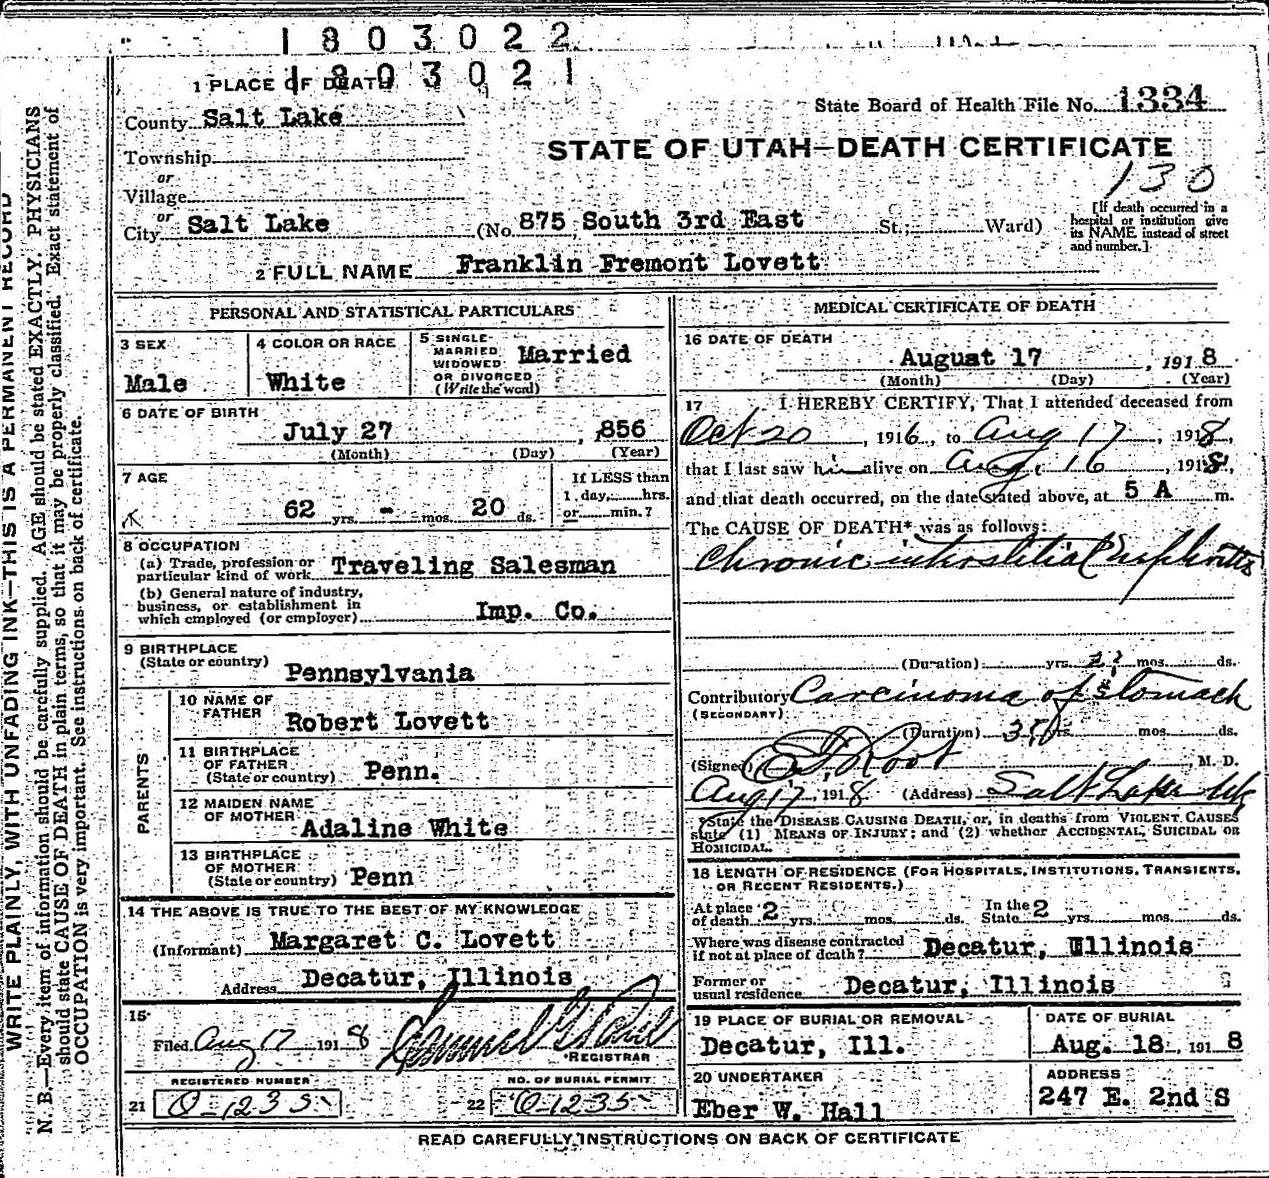 1803022
1803021
1 PLACE OF DEATH
County Salt Lake
State Board of Health File No. 1334
Township
or
Village
or
City Salt Lake (No. 875 South 3rd East St.; Ward)
STATE OF UTAH—DEATH CERTIFICATE
130
[If death occurred in a
hospital or institution give
its NAME instead of street
and number.]
2 FULL NAME Franklin Fremont Lovett
PERSONAL AND STATISTICAL PARTICULARS
3 SEX
Male
4 COLOR OR RACE
White
5 SINGLE
MARRIED
WIDOWED
OR DIVORCED
(Write the word)
Married
6 DATE OF BIRTH
July 27, 1856
(Month) (Day) (Year)
7 AGE
62 yrs. - mos. 20 ds.
If LESS than
1 day,......hrs.
or......min.?
8 OCCUPATION
(a) Trade, profession or
particular kind of work Traveling Salesman
(b) General nature of industry,
business, or establishment in
which employed (or employer) Imp. Co.
9 BIRTHPLACE
(State or country) Pennsylvania
PARENTS
10 NAME OF
FATHER Robert Lovett
11 BIRTHPLACE
OF FATHER
(State or country) Penn.
12 MAIDEN NAME
OF MOTHER Adaline White
13 BIRTHPLACE
OF MOTHER
(State or country) Penn
14 THE ABOVE IS TRUE TO THE BEST OF MY KNOWLEDGE
(Informant) Margaret C. Lovett
Address Decatur, Illinois
15
Filed Aug 17 1918 Samuel G. Paul
REGISTRAR
REGISTERED NUMBER
21 O-1235
NO. OF BURIAL PERMIT
22 O-1235
MEDICAL CERTIFICATE OF DEATH
16 DATE OF DEATH
August 17, 1918
(Month) (Day) (Year)
17 I HEREBY CERTIFY, That I attended deceased from
Oct 20, 1916, to Aug 17, 1918,
that I last saw him alive on Aug. 16, 1918,
and that death occurred, on the date stated above, at 5 A m.
The CAUSE OF DEATH* was as follows:
Chronic interstitial Nephritis
(Duration) yrs. 2? mos. ds.
Contributory Carcinoma of Stomach
(SECONDARY)
(Duration) 3 yrs. mos. ds.
(Signed) Root, M. D.
Aug 17, 1918 (Address) Salt Lake Ut
*State the DISEASE CAUSING DEATH, or, in deaths from VIOLENT CAUSES
state (1) MEANS OF INJURY; and (2) whether ACCIDENTAL, SUICIDAL OR
HOMICIDAL.
18 LENGTH OF RESIDENCE (FOR HOSPITALS, INSTITUTIONS, TRANSIENTS,
OR RECENT RESIDENTS.)
At place
of death 2 yrs. mos. ds. In the
State 2 yrs. mos. ds.
Where was disease contracted
if not at place of death? Decatur, Illinois
Former or
usual residence Decatur, Illinois
19 PLACE OF BURIAL OR REMOVAL
Decatur, Ill.
DATE OF BURIAL
Aug. 18, 1918
20 UNDERTAKER
Eber W. Hall
ADDRESS
247 E. 2nd S
READ CAREFULLY INSTRUCTIONS ON BACK OF CERTIFICATE
WRITE PLAINLY, WITH UNFADING INK—THIS IS A PERMANENT RECORD
N. B.—Every item of information should be carefully supplied. AGE should be stated EXACTLY. PHYSICIANS
should state CAUSE OF DEATH in plain terms, so that it may be properly classified. Exact statement of
OCCUPATION is very important. See instructions on back of certificate.